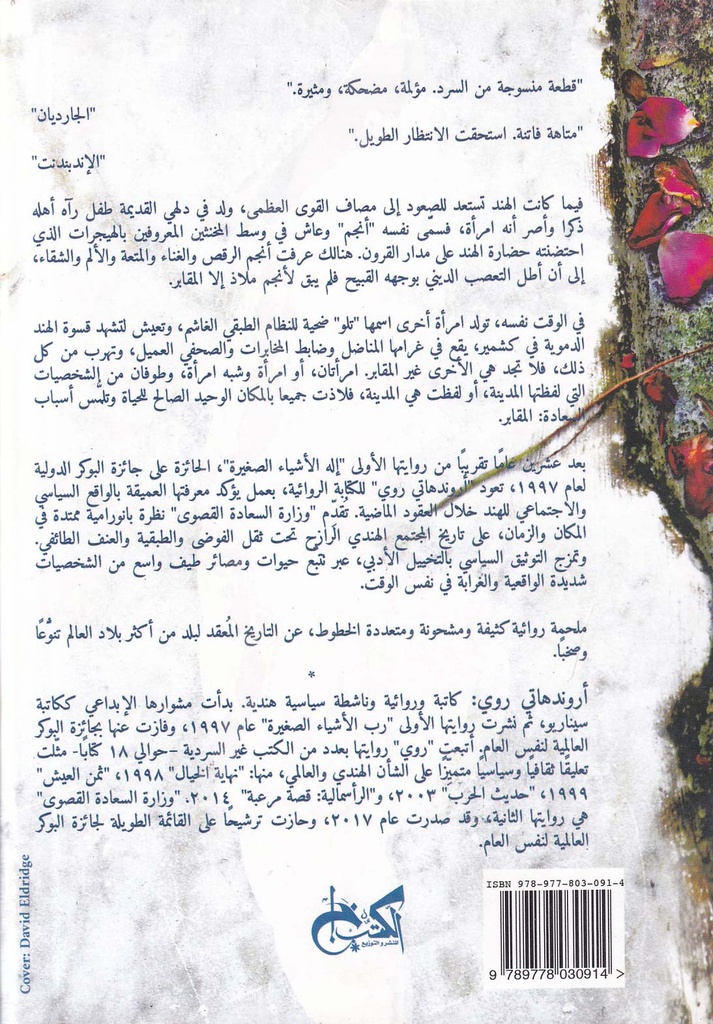 "قطعة منسوجة من السرد. مؤلمة، مضحكة، ومثيرة."
"الجارديان"
"متاهة فاتنة. استحقت الانتظار الطويل."
"الإندبندنت"
فيما كانت الهند تستعد للصعود إلى مصاف القوى العظمى، ولد في دلهي القديمة طفل رآه أهله
ذكرا وأصر أنه امرأة، فسمّى نفسه "أنجم" وعاش في وسط المخنثين المعروفين بالهيجرات الذي
احتضنته حضارة الهند على مدار القرون. هنالك عرفت أنجم الرقص والغناء والمتعة والألم والشقاء،
إلى أن أطل التعصب الديني بوجهه القبيح فلم يبق لأنجم ملاذ إلا المقابر.
في الوقت نفسه، تولد امرأة أخرى اسمها "تلو" ضحية للنظام الطبقي الغاشم، وتعيش لتشهد قسوة الهند
الدموية في كشمير، يقع في غرامها المناضل وضابط المخابرات والصحفي العميل، وتهرب من كل
ذلك، فلا تجد هي الأخرى غير المقابر. امرأتان، أو امرأة وشبه امرأة، وطوفان من الشخصيات
التي لفظتها المدينة، أو لفظت هي المدينة، فلاذت جميعا بالمكان الوحيد الصالح للحياة وتلمس أسباب
السعادة: المقابر.
بعد عشرين عامًا تقريبًا من روايتها الأولى "إله الأشياء الصغيرة"، الحائزة على جائزة البوكر الدولية
لعام ١٩٩٧، تعود "أروندهاتي روي" للكتابة الروائية، بعمل يؤكد معرفتها العميقة بالواقع السياسي
والاجتماعي للهند خلال العقود الماضية. تُقدّم "وزارة السعادة القصوى" نظرة بانورامية ممتدة في
المكان والزمان، على تاريخ المجتمع الهندي الرازح تحت ثقل الفوضى والطبقية والعنف الطائفي.
وتمزج التوثيق السياسي بالتخييل الأدبي، عبر تتبّع حيوات ومصائر طيف واسع من الشخصيات
شديدة الواقعية والغرابة في نفس الوقت.
ملحمة روائية كثيفة ومشحونة ومتعددة الخطوط، عن التاريخ المُعقد لبلد من أكثر بلاد العالم تنوُّعًا
وصخبًا.
*
أروندهاتي روي: كاتبة وروائية وناشطة سياسية هندية. بدأت مشوارها الإبداعي ككاتبة
سيناريو، ثم نشرت روايتها الأولى "رب الأشياء الصغيرة" عام ١٩٩٧، وفازت عنها بجائزة البوكر
العالمية لنفس العام. أتبعت "روي" روايتها بعدد من الكتب غير السردية -حوالي ١٨ كتابًا- مثلت
تعليقًا ثقافيًا وسياسيًا متميزًا على الشأن الهندي والعالمي، منها: "نهاية الخيال" ١٩٩٨، "ثمن العيش"
١٩٩٩، "حديث الحرب" ٢٠٠٣، و"الرأسمالية: قصة مرعبة" ٢٠١٤. "وزارة السعادة القصوى"
هي روايتها الثانية، وقد صدرت عام ٢٠١٧، وحازت ترشيحًا على القائمة الطويلة لجائزة البوكر
العالمية لنفس العام.
Cover: David Eldridge
الكتب خان
للنشر والتوزيع
ISBN 978-977-803-091-4
9 789778 030914 >